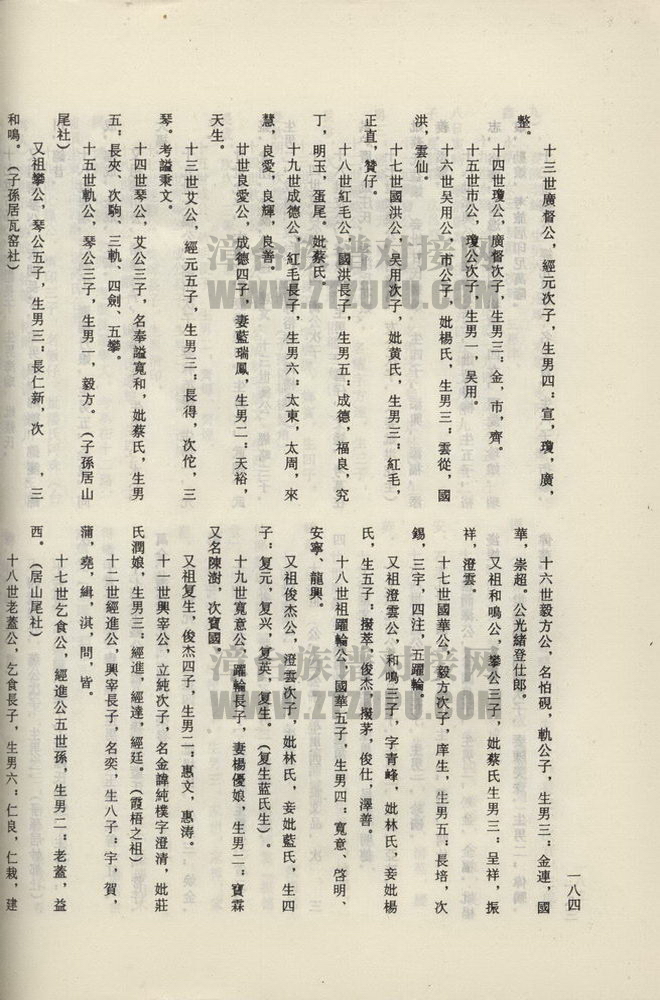 一八四
整。
十三世廣督公，經元次子，生男四：宣，瓊，廣，
志，
十四世瓊公，廣督次子，生男三：金，市，齊。
十五世市公，瓊公次子，生男一，吴用。
十六世吴用公，市公子，妣楊氏，生男三：雲從，國
洪，雲仙。
十七世國洪公，吴用次子，妣黄氏，生男三：紅毛，
正直，贊仔。
十八世紅毛公，國洪長子，生男五：成德，福良，究
丁，明玉，蛋尾。妣蔡氏。
十九世成德公，紅毛長子，生男六：太東，太周，來
慧，良愛，良輝，良善。
廿世良愛公，成德四子，妻藍瑞鳳，生男二：天裕，
天生。
十三世艾公，經元五子，生男三：長得，次佗，三
琴。考謚秉文。
十四世琴公，艾公三子，名奉謚寬和，妣蔡氏，生男
五：長夾、次駒、三軌、四劍、五攀。
十五世軌公，琴公三子，生男一，毅方。（子孫居山
尾社）
又祖攀公，琴公五子，生男三：長仁新，次　，三
和鳴。（子孫居瓦窑社）
十六世毅方公，名怕硯，軌公子，生男三：金連，國
華，崇超。公光緒登仕郎。
又祖和鳴公，攀公三子，妣蔡氏生男三：呈祥，振
祥，澄雲。
十七世國華公，毅方次子，庠生，生男五：長培，次
錫，三宇，四注，五躍輪。
又祖澄雲公，和鳴三子，字青峰，妣林氏，妾妣楊
氏，生五子：撥萃，俊杰，撥茅，俊仕，澤善。
十八世祖躍輪公，國華五子，生男四：寬意、啓明、
安寧、龍興。
又祖俊杰公，澄雲次子，妣林氏，妾妣藍氏，生四
子：复元，复兴，复英，复生。（复生蓝氏生）。
十九世寬意公，躍輪長子，妻楊優娘，生男二：寶霖
又名陳澍，次寶國。
又祖复生，俊杰四子，生男二：惠文，惠涛。
十一世興宰公，立純次子，名金諱純樸字澄清，妣莊
氏潤娘，生男三：經進，經達，經廷。（霞梧之祖）
十二世經進公，興宰長子，名奕，生八子：宇，賀，
蒲，堯，緝，淇，問，皆。
十七世乞食公，經進公五世孫，生男二：老蓋，益
西。（居山尾社）
十八世老蓋公，乞食長子，生男六：仁良，仁栽，建
漳台族谱对接网
WWW.ZTZUPU.COM
漳台族谱对接网
WWW.ZTZUPU.COM